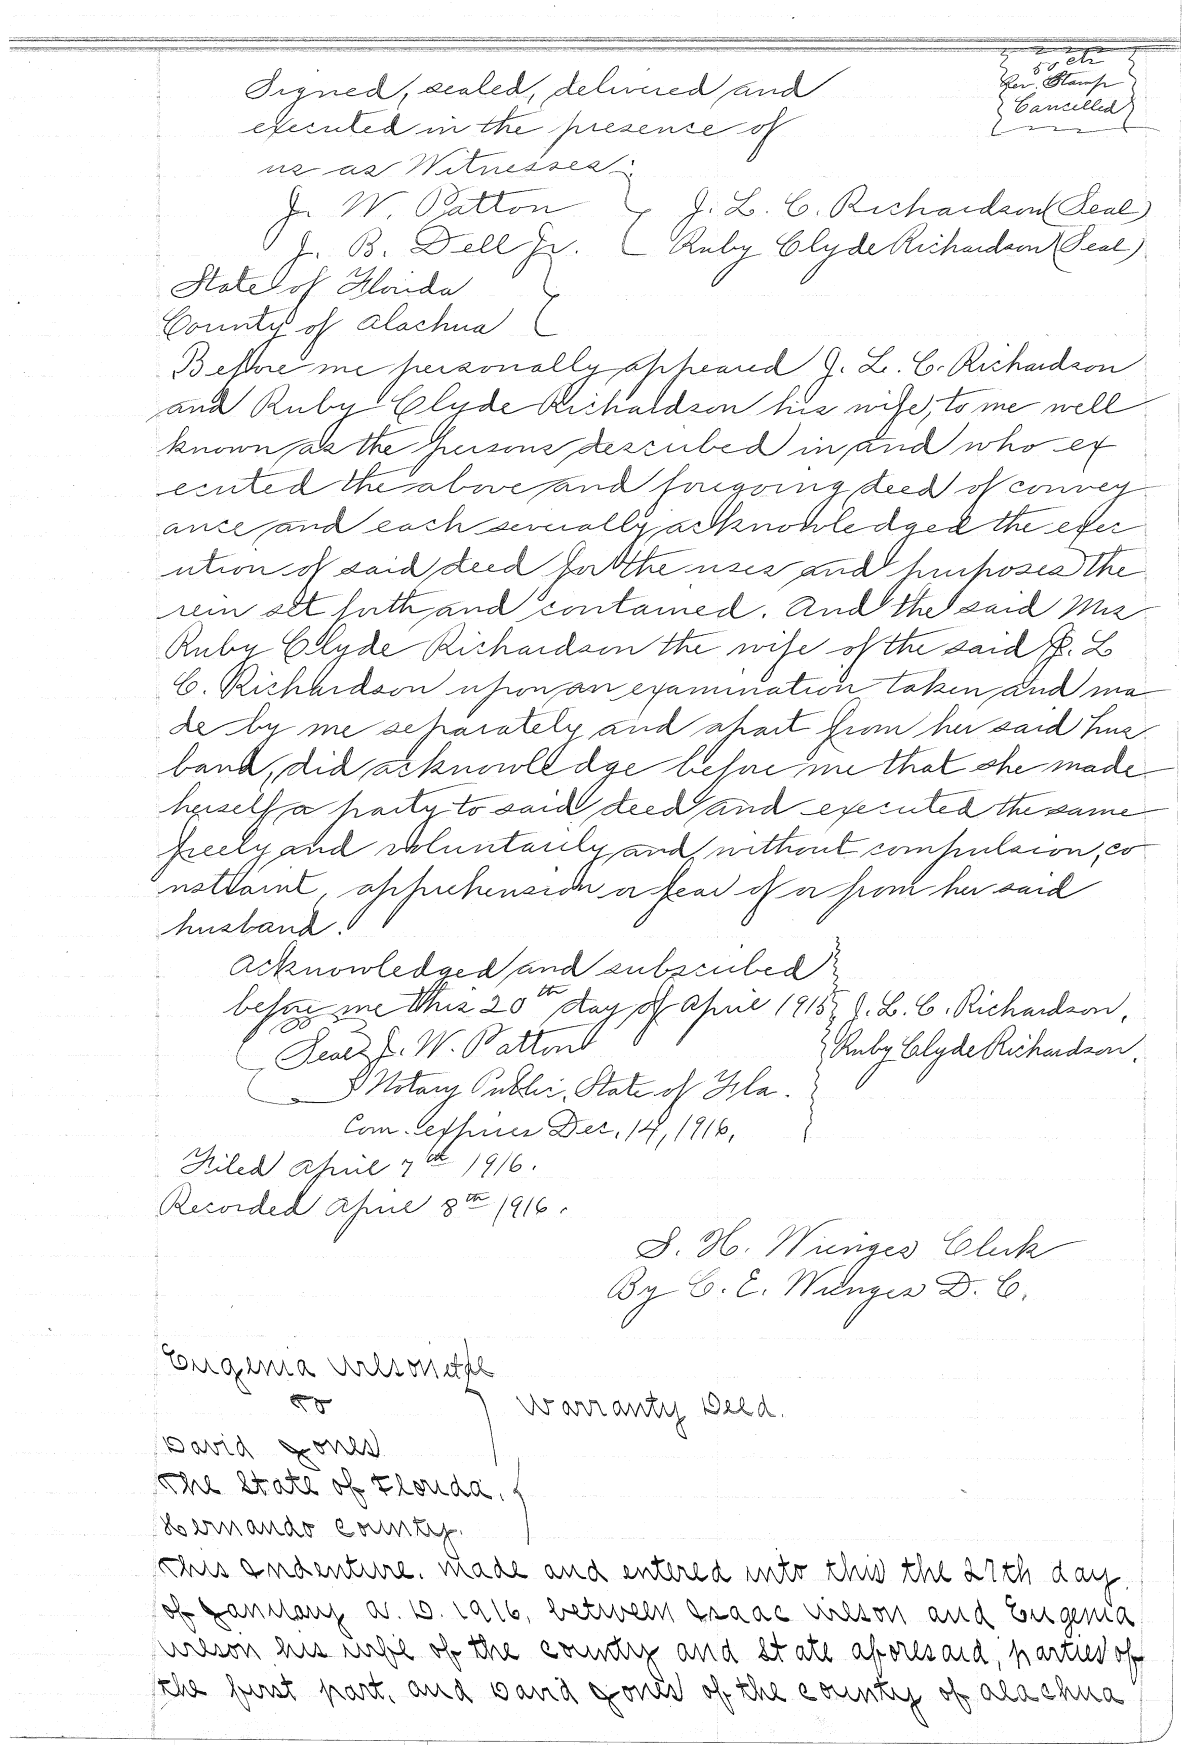 50 cts
Rev. Stamp
Cancelled
Signed, sealed, delivered and
executed in the presence of
us as Witnesses:
J. W. Patton
J. L. C. Richardson (Seal)
J. B. Dell Jr.
Ruby Clyde Richardson (Seal)
State of Florida
County of Alachua
Before me personally appeared J. L. C. Richardson
and Ruby Clyde Richardson his wife, to me well
known as the persons described in and who ex
ecuted the above and foregoing deed of convey
ance and each severally acknowledged the exec
ution of said deed for the uses and purposes the
rein set forth and contained. And the said Mrs
Ruby Clyde Richardson the wife of the said J. L
C. Richardson upon an examination taken and ma
de by me separately and apart from her said hus
band, did acknowledge before me that she made
herself a party to said deed and executed the same
freely and voluntarily and without compulsion, co
nstraint, apprehension or fear of or from her said
husband.
Acknowledged and subscribed
before me this 20th day of April 1915
J. L. C. Richardson,
Seal J. W. Patton
Ruby Clyde Richardson.
Notary Public, State of Fla.
Com. expires Dec. 14, 1916,
Filed April 7th 1916.
Recorded April 8th 1916.
S. H. Wienges Clerk
By C. E. Wienges D. C.
Eugenia Wilson et al
To
Warranty Deed.
David Jones
The State of Florida,
Hernando County.
This Indenture, made and entered into this the 27th day
of January A. D. 1916, between Isaac Wilson and Eugenia
Wilson his wife of the county and State aforesaid, parties of
the first part, and David Jones of the county of Alachua